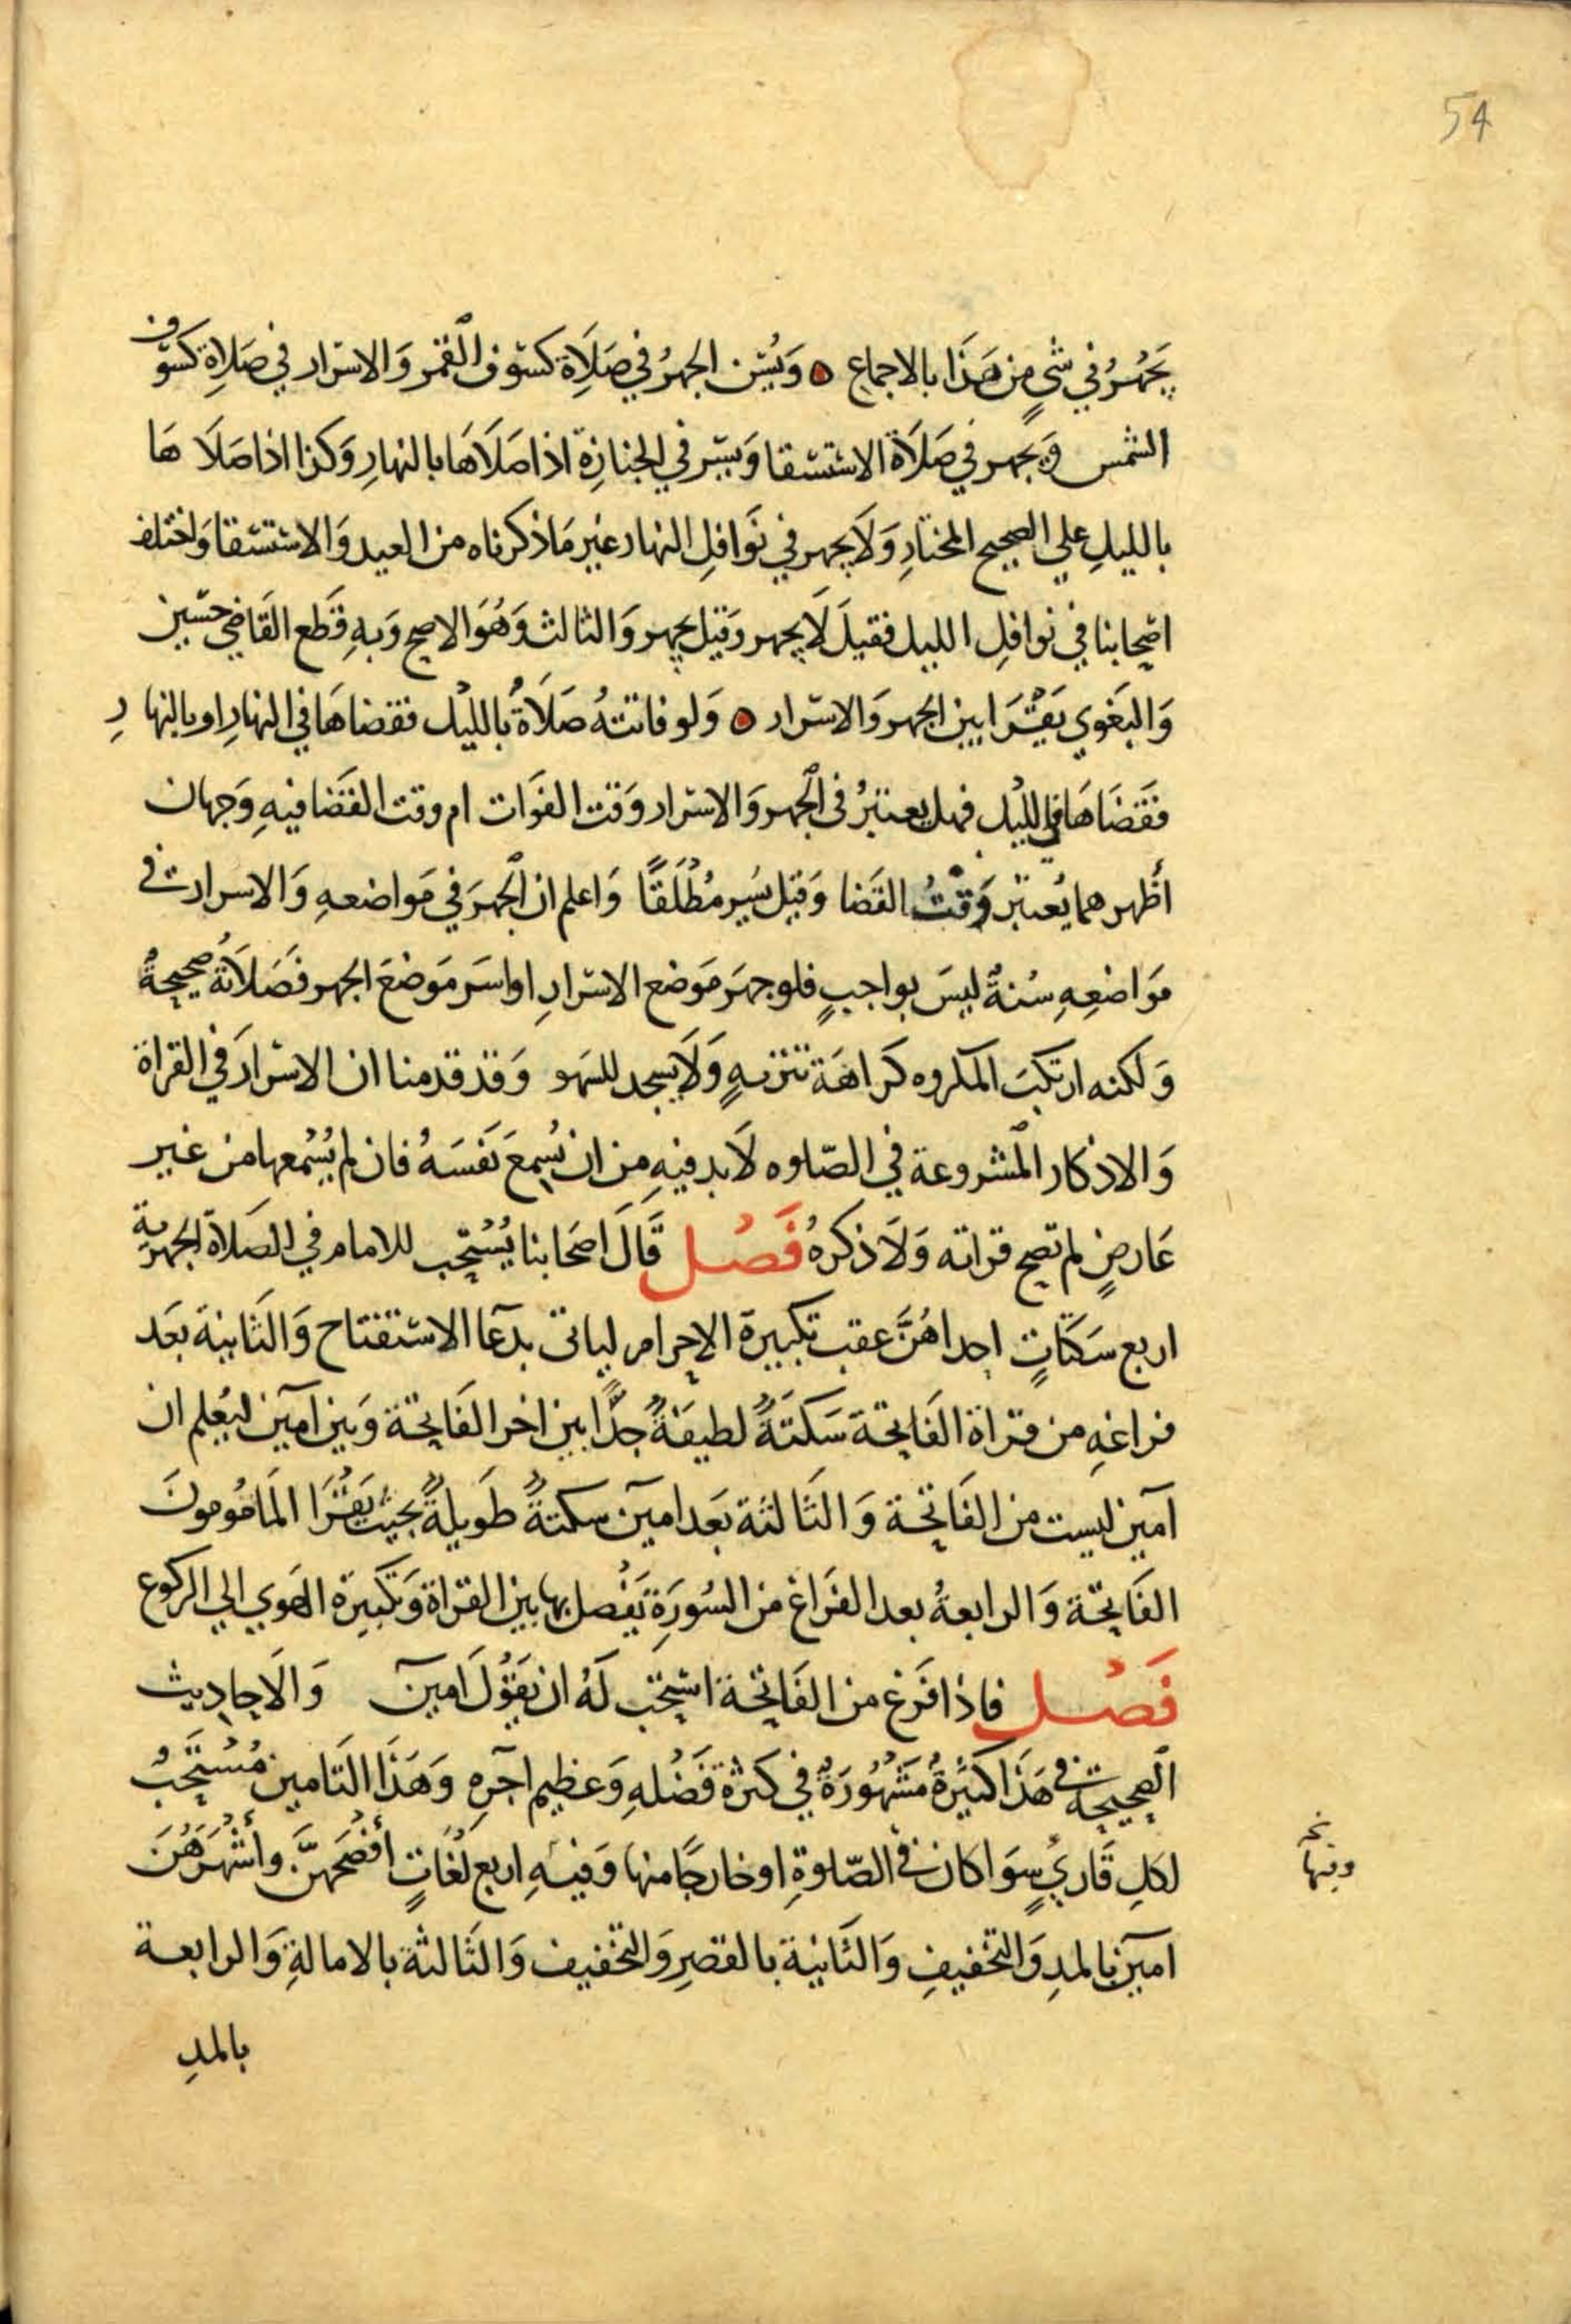 54
يَجْهَرُ في شيٍ من هَذا بالاجماع ۞ وَيُسَن الجهرُ في صَلَاة كسوف القمر وَالاسرار في صَلاةِ كسوف
الشمس وَيجهر في صَلَاة الاستسقا وَيسر في الجنازة اذا صَلَاهَا بالنهارِ وَكذا اذا صَلَا هَا
بالليلِ علي الصحيح المختارِ وَلَا يجهر في نوَافلِ النهار غير مَا ذكرناه من العيد وَالاستسقا وَاختلف
اصحابنا في نوافلِ الليل فقيلَ لَا يجهر وقيل يجهر وَالثالث وَهُوَ الاصح وَبهِ قَطع القَاضي حسَين
وَالبَغوي يَقْرَا بين الجهر وَالاسرار ۞ وَلو فاتتهُ صَلَاةٌ بالليْل فقضاهَا في النهارِ او بالنهارِ
فقَضَاهَا في الليْل فهل يعتبرُ في الجهر وَالاسرار وَقت الفوَات ام وقت القضا فيهِ وَجهان
أظهرهما يُعتبر وَقْتُ القَضا وَقيل يُسِر مُطْلَقًا وَاعلم ان الجهرَ في مَواضعهِ وَالاسرار في
مَوَاضِعِهِ سُنةٌ ليسَ بواجبٍ فلو جهرَ مَوضع الاسرارِ او اسَر مَوضعَ الجهر فصَلَاتهُ صحيحةٌ
وَلكنه ارتكبَ المكروه كرَاهَة تنزيهٍ وَلَا يسجد للسهو وَقد قدمنا ان الاسرارَ في القراة
وَالاذكار المشروعة في الصّلوه لَا بد فيهِ من ان يُسِمعَ نَفسَهُ فان لم يُسْمعها من غير
عَارضٍ لم تصح قراته وَلَا ذكرهُ فَصْل قَالَ اصحَابنا يُسْتَحَب للامام في الصَلَاة الجهرية
اربع سَكتَاتٍ احداهُنَّ عقب تكبيرة الاحرام لياتي بدعآ الاستفتاح وَالثانية بعَد
فراغهِ من قراة الفَاتحة سَكتَةً لطيفَةً جدًّا بين اخر الفَاتحة وَبين آمين ليُعلم ان
آمين ليست من الفَاتحة وَالثَالثة بَعد امين سكتةً طَويلةً بحيث يَقْرَا المَامُومونَ
الفَاتحة وَالرابعةُ بعد الفرَاغ من السُورَةِ يَفْصل بها بين القراة وَتكبيرة الهوي الي الركوع
فَصْل فاذا فَرَغ من الفَاتحة استحب لَهُ ان يَقُوْلَ امين وَالَاحادِيث
الصحيحة في هَذا كثيَرةُ مَشْهُورَةٌ في كثرة فَضْلهِ وَعظيم اجرِهِ وَهَذَا التَامين مُسْتَحَبٌ
لكلِ قَاريٍ سوَا كان في الصّلوةِ او خارجًا منها وَفيهِ اربع لُغَاتٍ أفصَحهنّ وأشْهَرَهُنَ
وفيها نخ
امين بالمدِ وَالتخفيفِ وَالثَانية بالقصرِ وَالتخفيف وَالثَالثة بالامالةِ وَالرابعة
بالمدِ